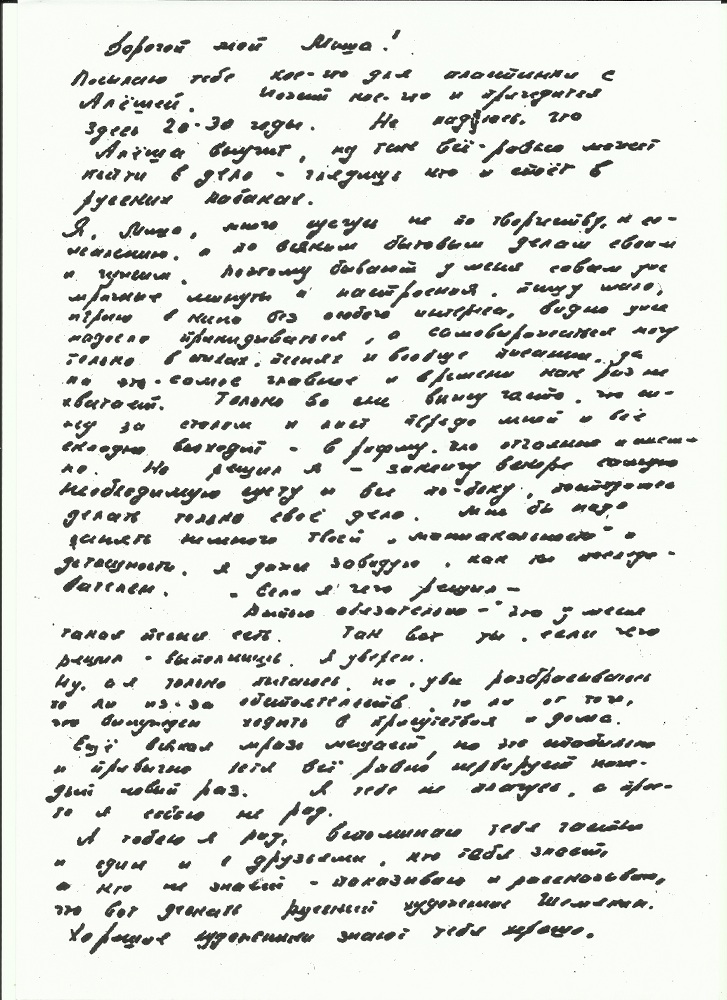 Дорогой мой Миша!
Посылаю тебе кое-что для пластинки с
Алёшей. Может кое-что и пригодится
здесь 20-30 годы. Не надеюсь, что
Алёша выучит, ну тоже всё-равно может
пойти в дело - глядишь кто и споёт в
русских кабаках.
Я, Миша, много суечусь не по творчеству, к со-
жалению, а по всяким бытовым делам своим
и чужим. Поэтому бывают у меня совсем уже
мрачные минуты и настроения. Пишу мало,
играю в кино без особого интереса, видно уже
надоело прикидываться, а самовыражаться могу
только в стихах, песнях и вообще писании, да
на это - самое главное и времени как раз не
хватает. Только во сны вижу часто, что си-
жу за столом и лист передо мной и всё
складно выходит - в рифму, зло отчаянно и смеш-
но. Но решил я - закончу вскоре самую
необходимую суету и все по-боку, постараюсь
делать только своё дело. Мне бы надо
занять немного твоей „маниакальности" и
детскости. Я даже завидую, как ты последо-
вателен. - Если я чего решил -
Выпью обязательно - это у меня
такая песня есть. Так вот ты, если чего
решил - выполнишь. Я уверен.
Ну, а я только пытаюсь, но, увы разбрасываюсь
то ли из-за обстоятельств, то ли от того,
что вынужден ходить в присутствия и дома.
Ещё всякая мразь мешает, но это стабильно
и привычно хотя всё равно нервирует каж-
дый новый раз. Я тебе не плачусь, а прос-
то я собою не рад.
А тобою я рад, вспоминаю тебя часто
и один и с друзьями, кто тебя знает,
а кто не знает - показываю и рассказываю,
что вот дескать русский художник Шемякин.
Хорошие художники знают тебя хорошо.